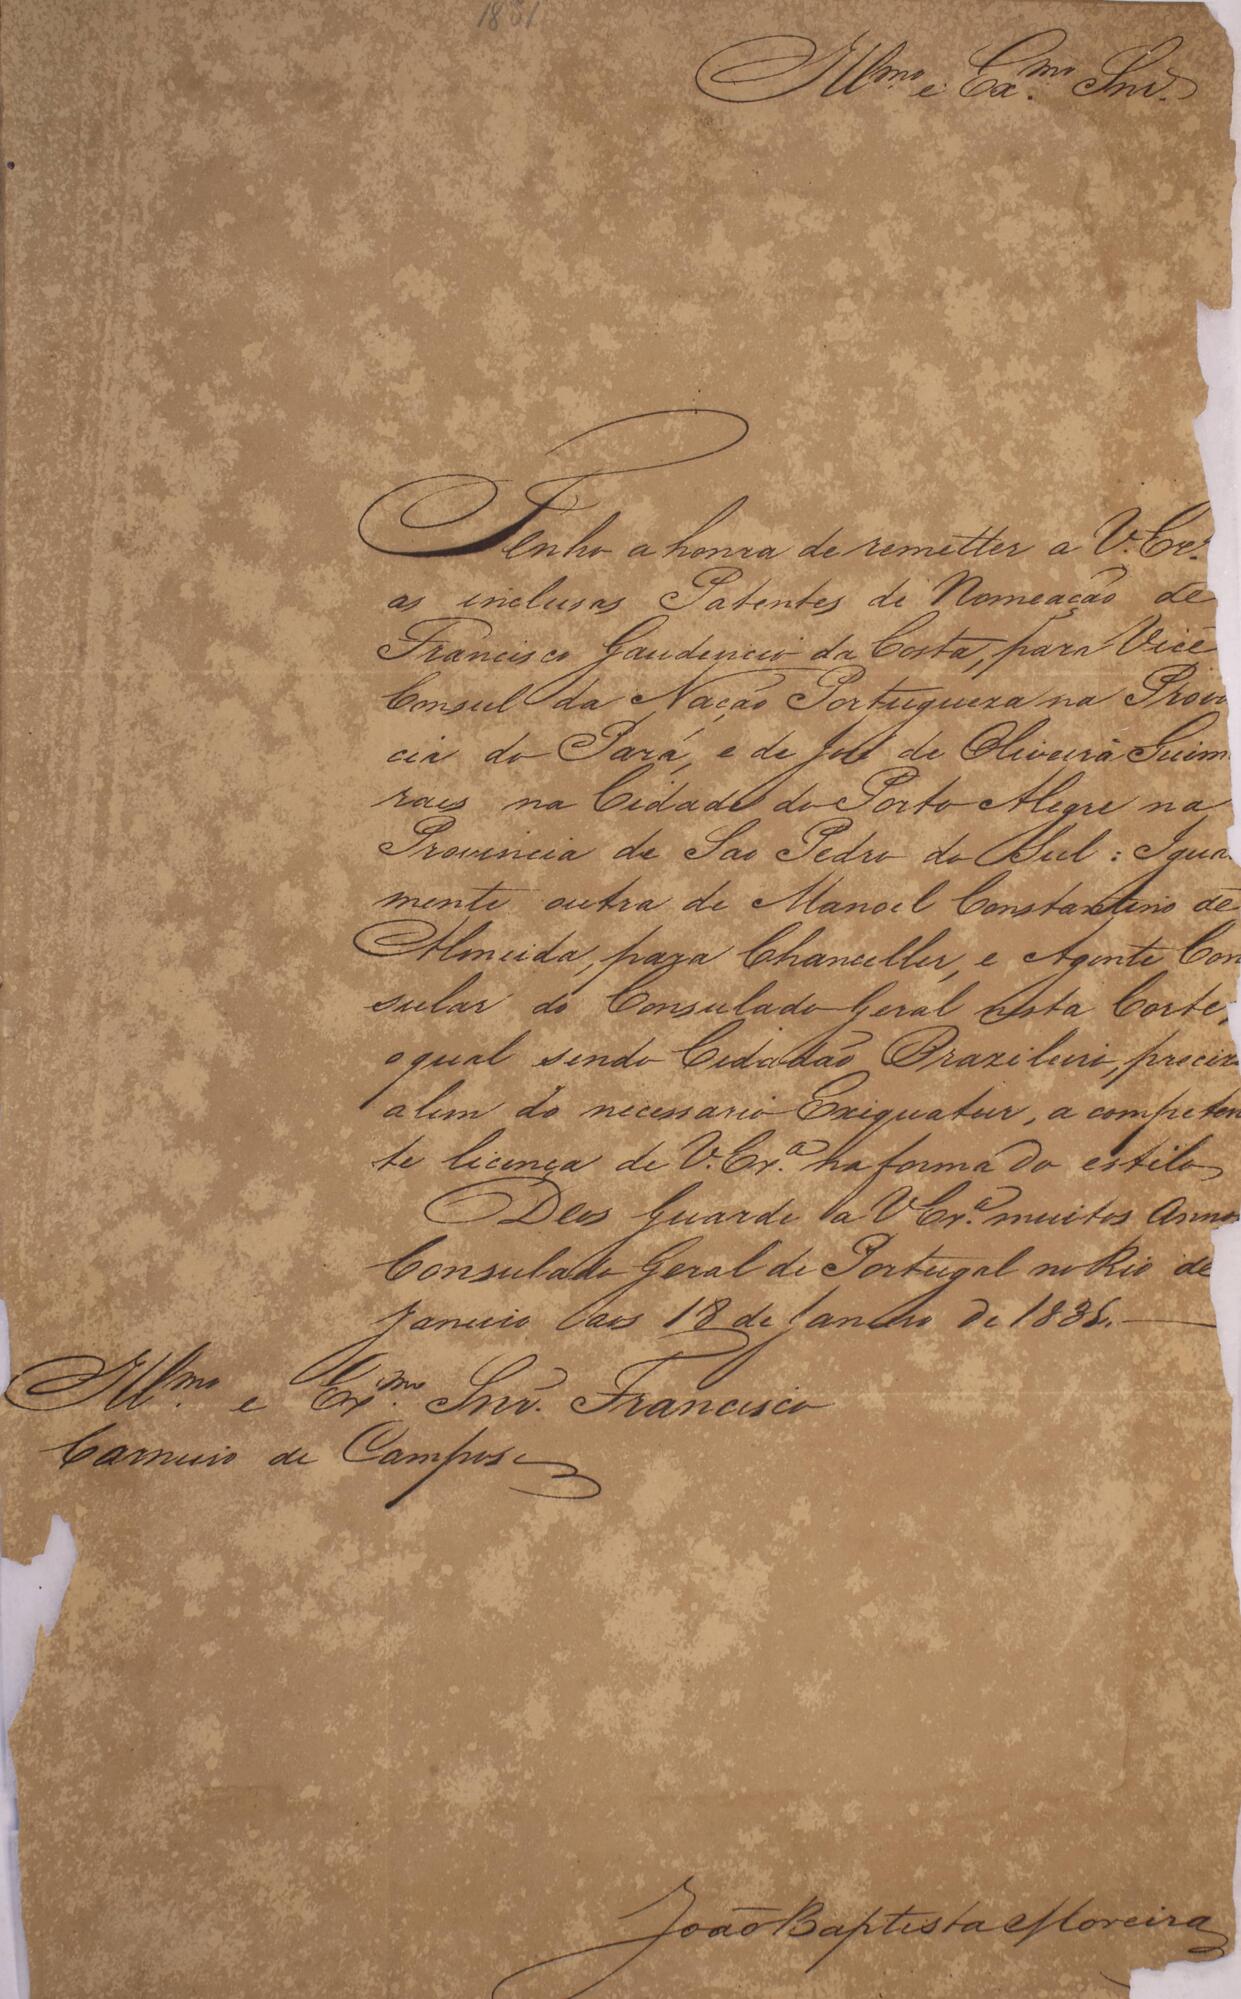 1831
Illmo. e Exmo. Snr.
Tenho a honra de remetter a V. Exa.
as inclusas Patentes de Nomeação de
Francisco Gaudencio da Costa, para Vice
Consul da Nação Portugueza na Provin
cia do Pará, e de José de Oliveira Guim
raes na Cidade do Porto Alegre na
Provincia de Sao Pedro do Sul : Igual
mente outra de Manoel Constantino de
Almeida, para Chanceller, e Agente Con
sular do Consulado Geral nesta Corte,
o qual sendo Cidadão Brazileiro, preciza
alem do necessario Exiquatur, a competen
te licença de V. Exa. na forma do estilo
Deos Guarde a V Exa. muitos Annos
Consulado Geral de Portugal no Rio de
Janeiro aos 18 de Janeiro de
Illmo. e Exmo. Snr. Francisco
Carneiro de Campos
João Baptista Moreira